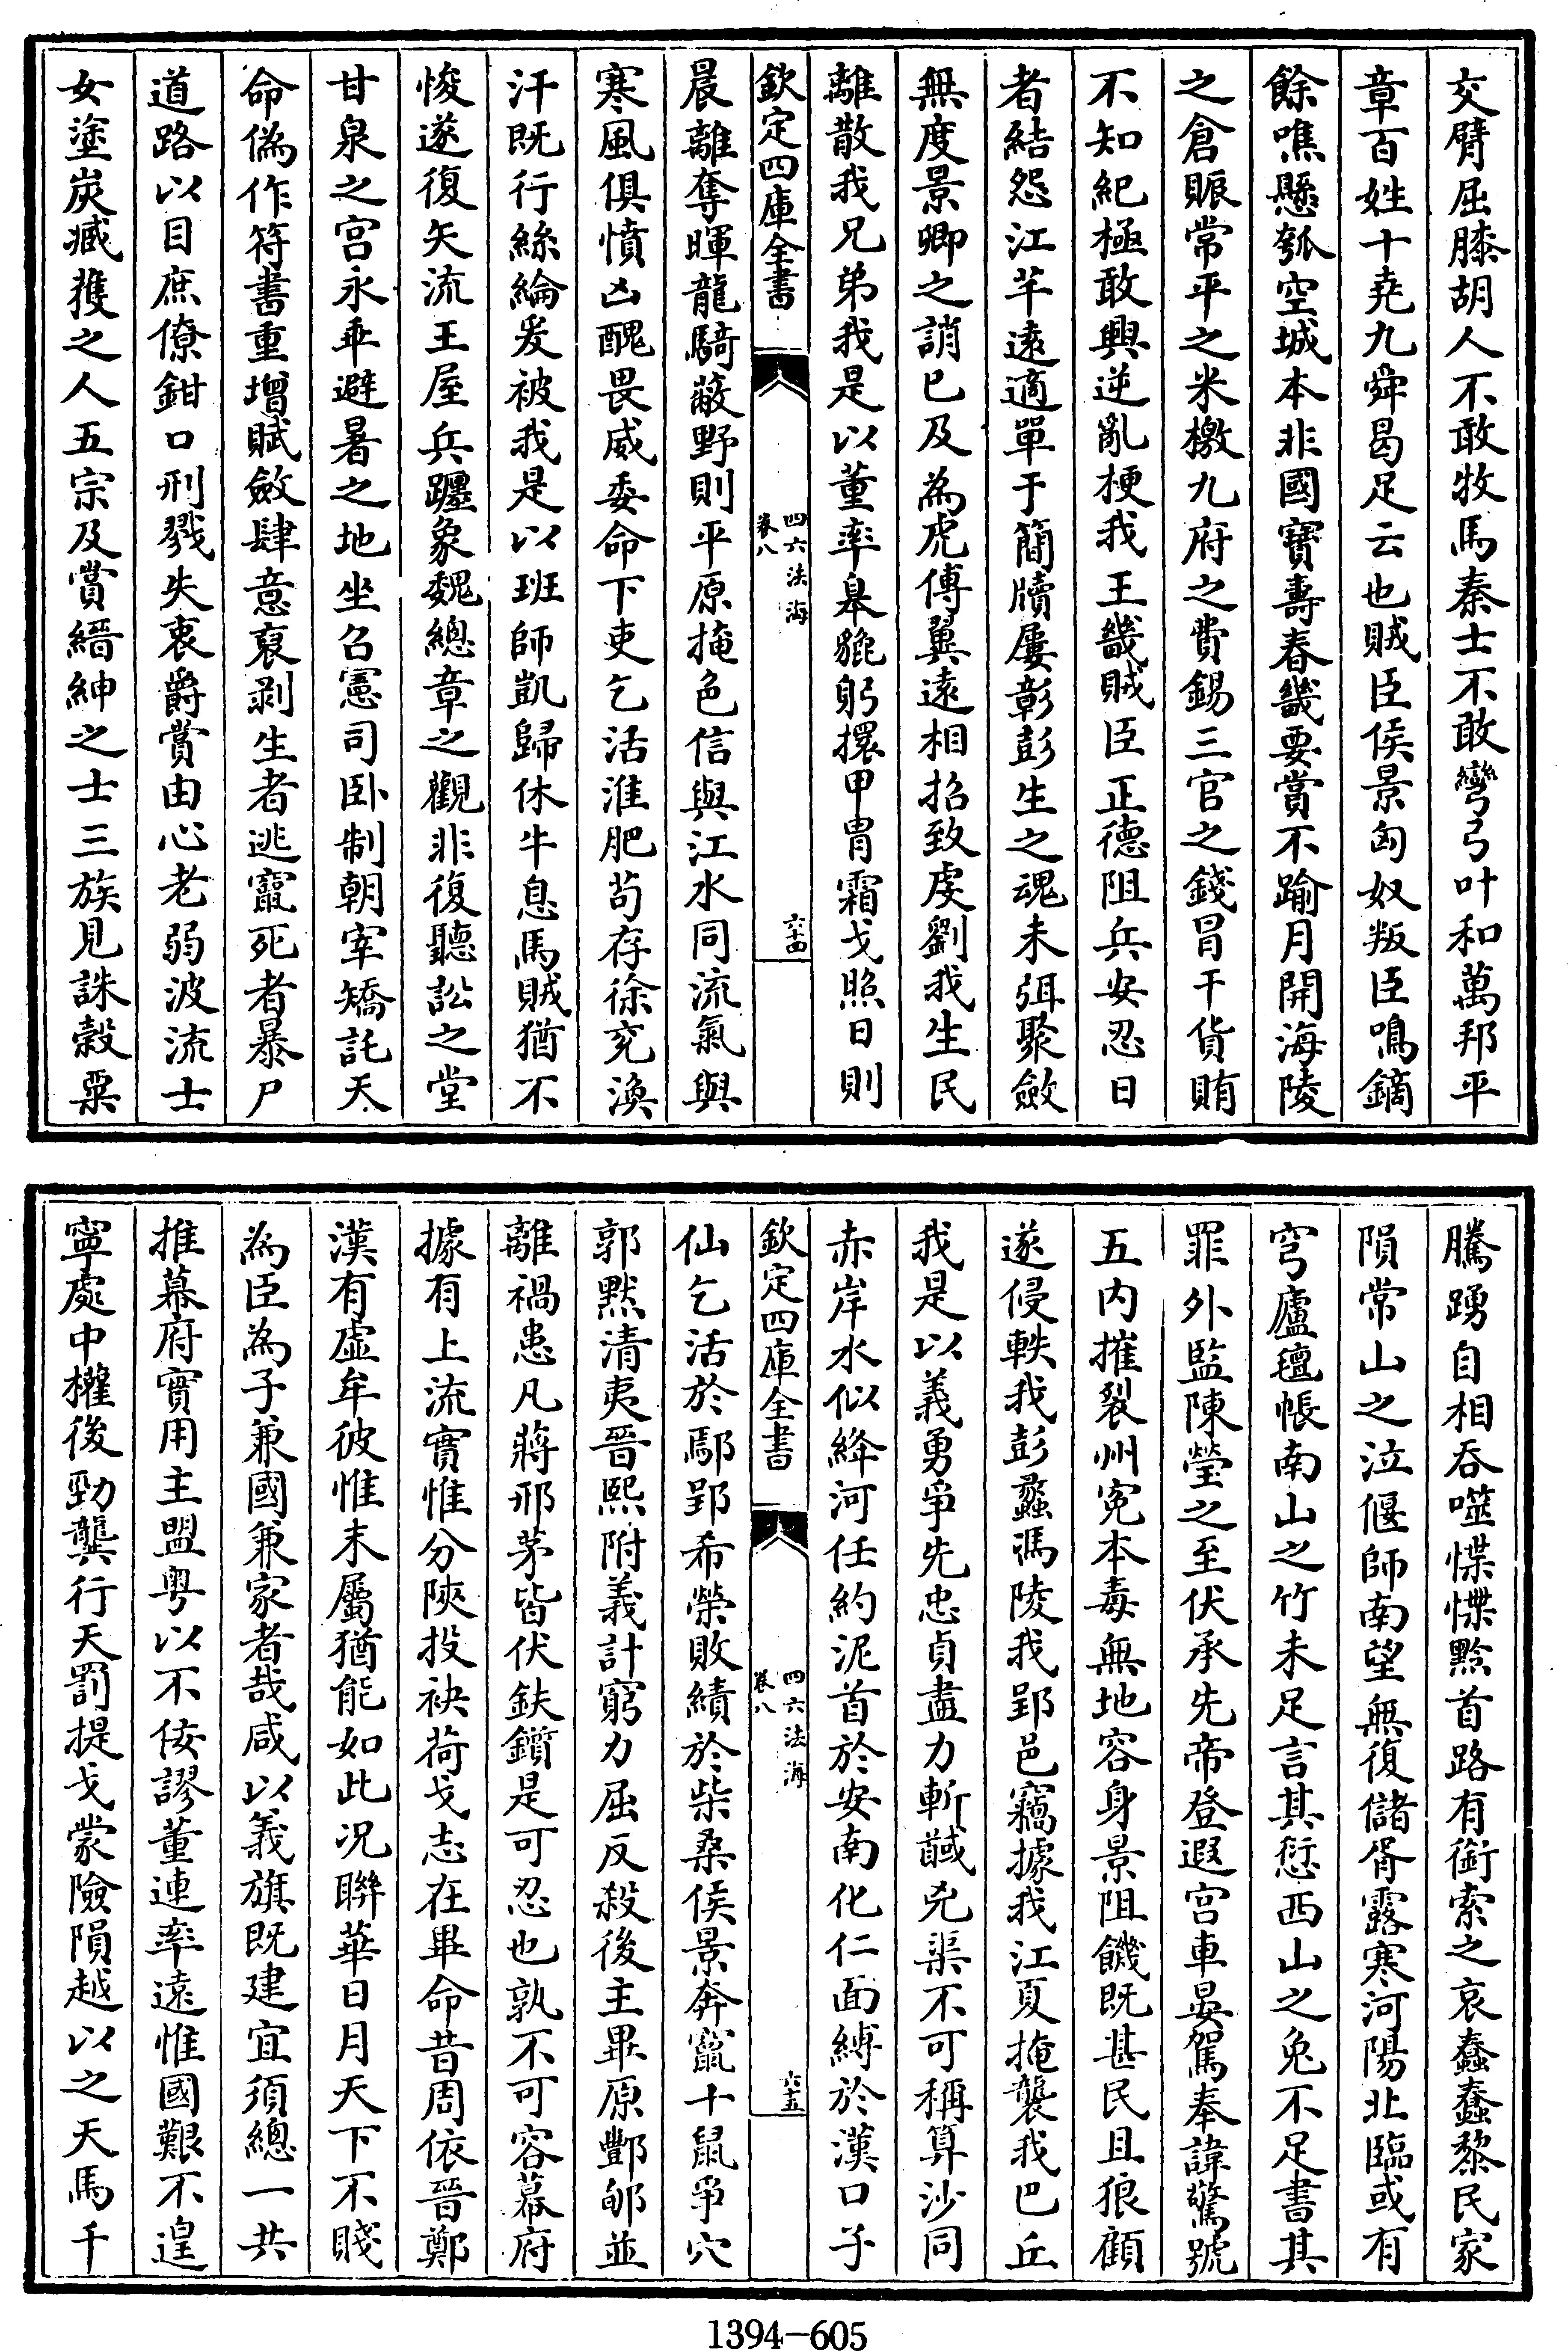 交臂屈膝胡人不敢牧馬秦士不敢彎弓叶和萬邦平
章百姓十堯九舜曷足云也賊臣侯景匈奴叛臣鳴鏑
餘噍懸瓠空城本非國寶壽春畿要賞不踰月開海陵
之倉賑常平之米檄九府之費錫三官之錢冒干貨賄
不知紀極敢興逆亂梗我王畿賊臣正德阻兵安忍日
者結怨江芊遠適單于簡牘屢彰彭生之魂未弭聚斂
無度景卿之誚已及為虎傅翼遠相招致虔劉我生民
離散我兄弟我是以董率皋貔躬擐甲胄霜戈照日則
欽定四庫全書
四六法海
卷八
六十四
晨離奪暉龍騎蔽野則平原掩色信與江水同流氣與
寒風俱憤凶醜畏威委命下吏乞活淮肥苟存徐兖渙
汗既行絲綸爰被我是以班師凱歸休牛息馬賊猶不
悛遂復矢流王屋兵躔象魏總章之觀非復聽訟之堂
甘泉之宮永乖避暑之地坐召憲司卧制朝宰矯託天
命偽作符書重增賦斂肆意裒剥生者逃竄死者暴尸
道路以目庶僚鉗口刑戮失衷爵賞由心老弱波流士
女塗炭臧獲之人五宗及賞縉紳之士三族見誅穀粟
騰踴自相吞噬惵惵黔首路有銜索之哀蠢蠢黎民家
隕常山之泣偃師南望無復儲胥露寒河陽北臨或有
穹廬氊帳南山之竹未足言其愆西山之兔不足書其
罪外監陳瑩之至伏承先帝登遐宫車晏駕奉諱驚號
五内摧裂州寃本毒無地容身景阻饑既甚民且狼顧
遂侵軼我彭蠡馮陵我郢邑竊據我江夏掩襲我巴丘
我是以義勇爭先忠貞盡力斬馘兇渠不可稱算沙同
赤岸水似絳河任約泥首於安南化仁面縛於漢口子
欽定四庫全書
四六法海
卷八
六十五
仙乞活於鄢郢希榮敗績於柴桑侯景奔竄十鼠爭穴
郭黙清夷晉熙附義計窮力屈反殺後主畢原酆郇並
離禍患凡蔣邢茅皆伏鈇鑕是可忍也孰不可容幕府
據有上流實惟分陜投袂荷戈志在畢命昔周依晉鄭
漢有虛牟彼惟末屬猶能如此况聯華日月天下不賤
為臣為子兼國兼家者哉咸以義旗既建宜須總一共
推幕府實用主盟粤以不佞謬董連率遠惟國艱不遑
寧處中權後勁龔行天罰提戈蒙險隕越以之天馬千
1394-605